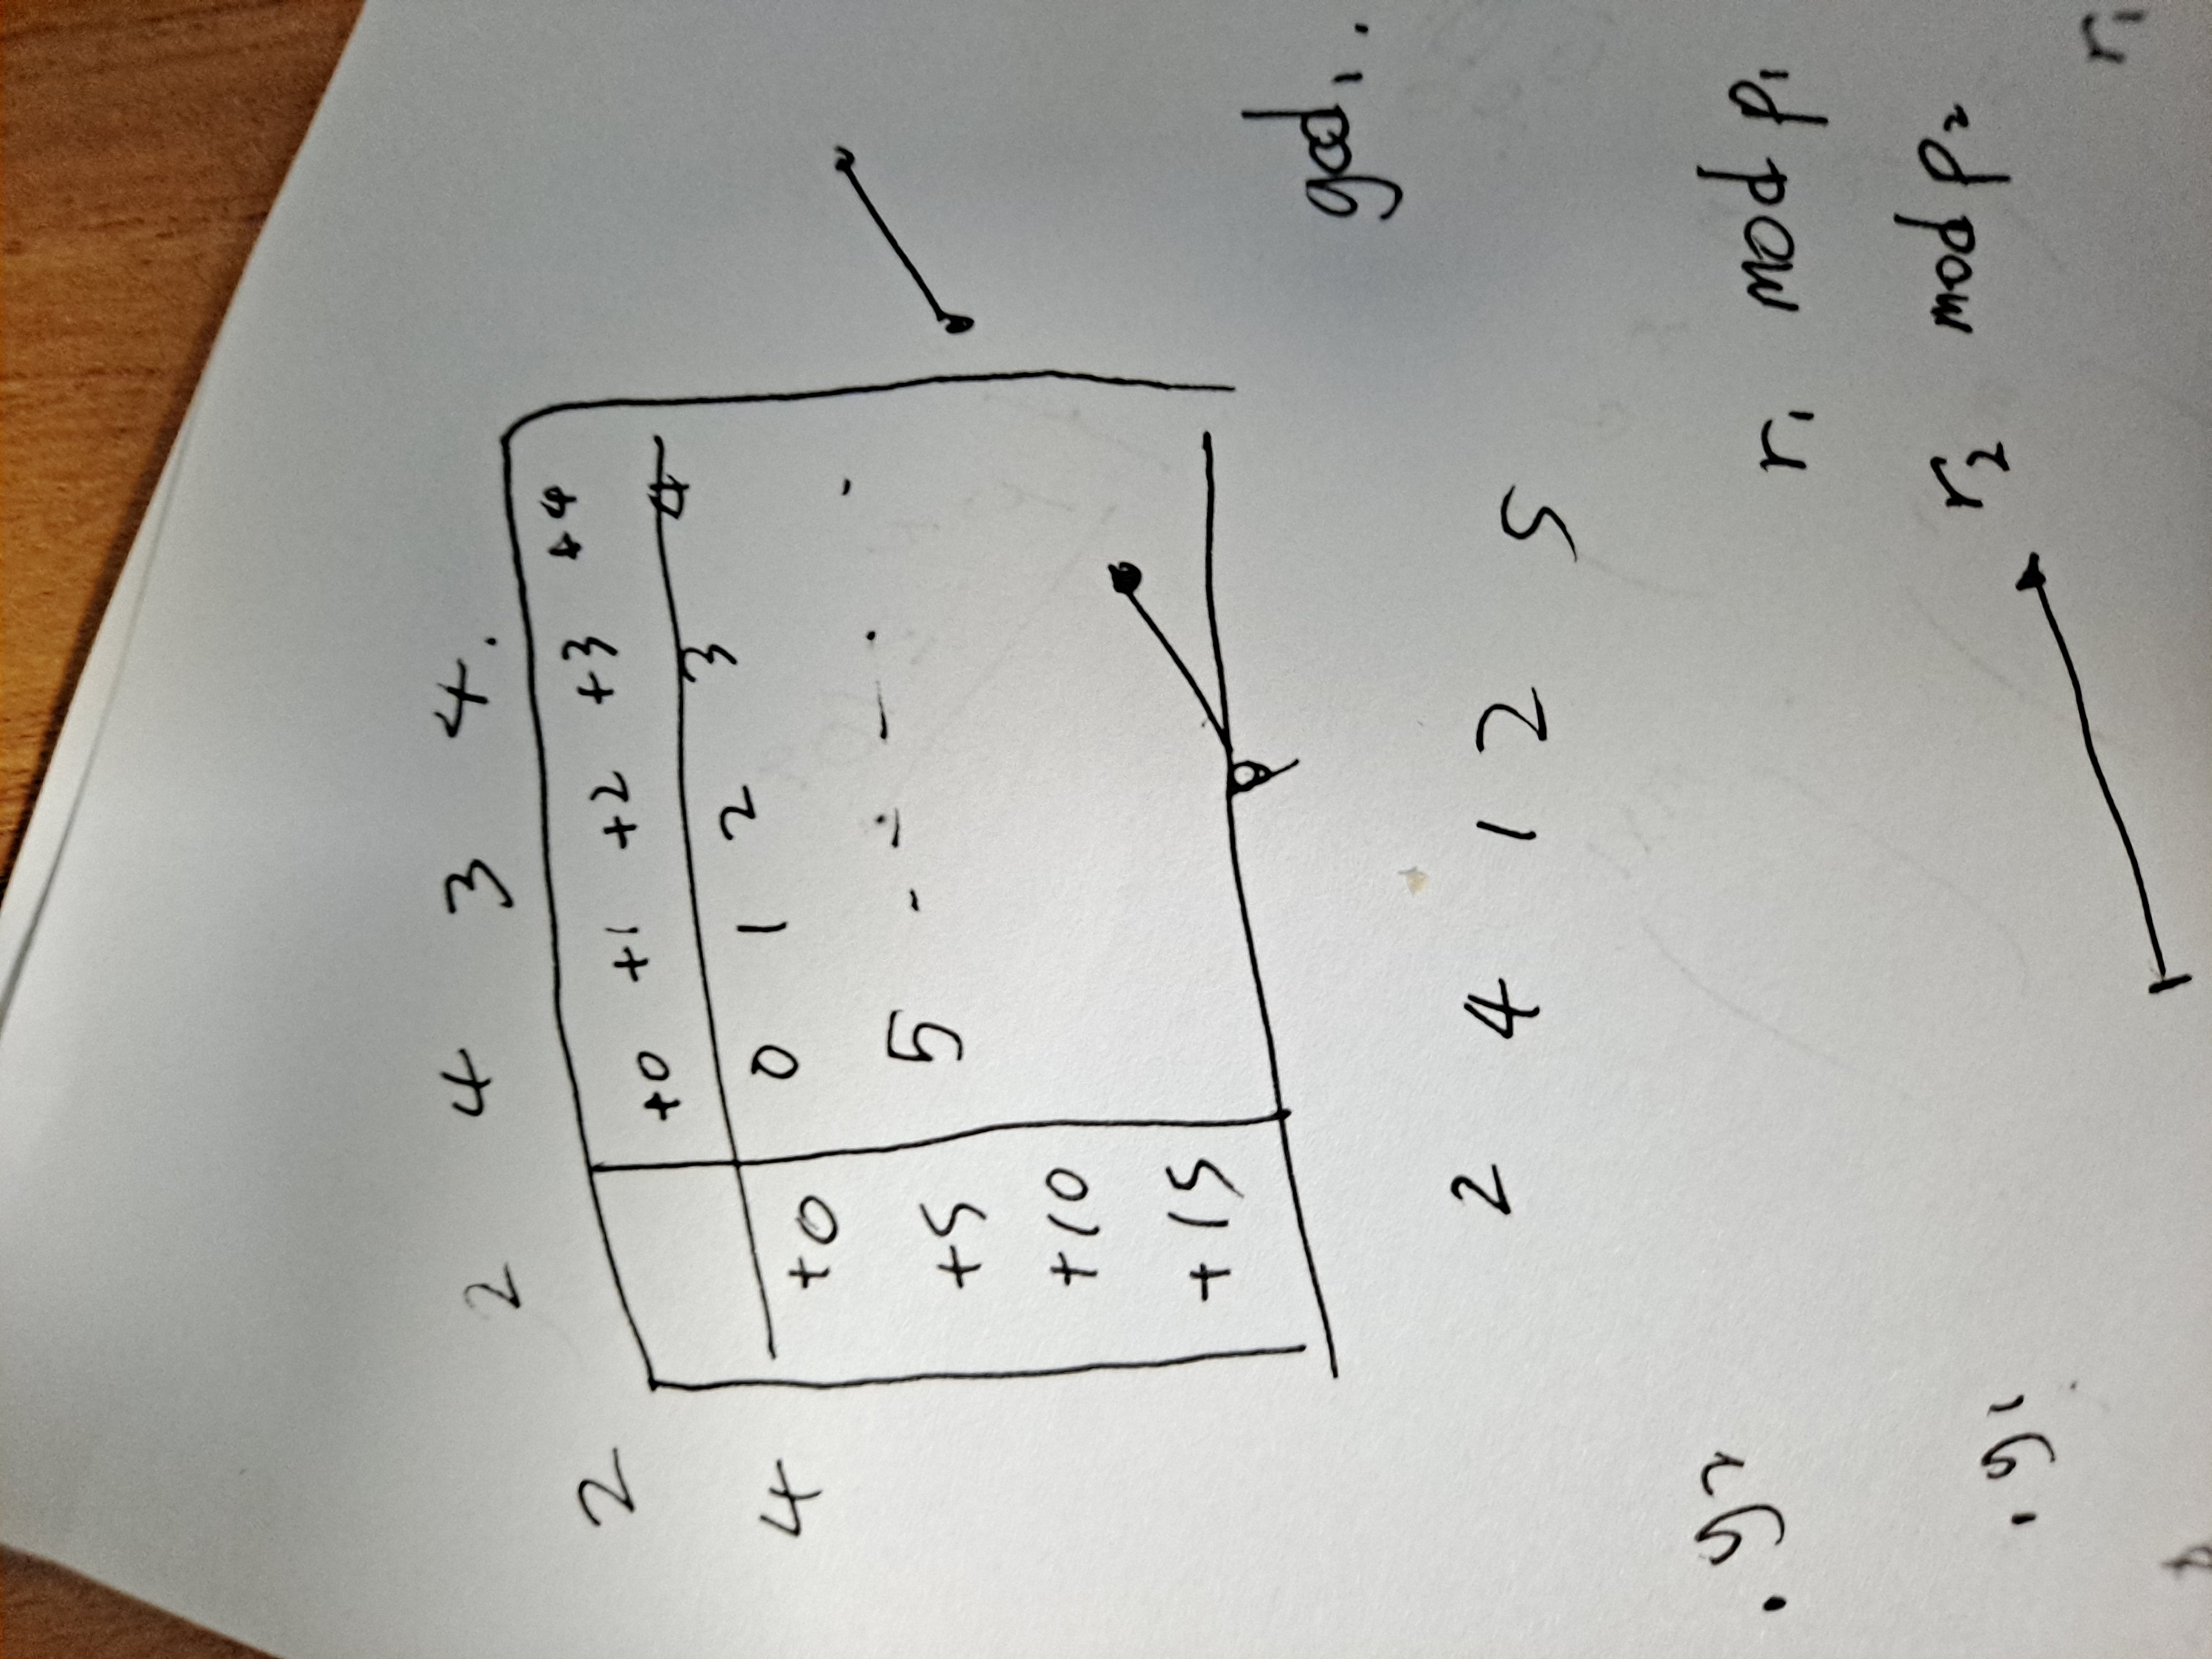 2 4 3 4.
2
+0 +1 +2 +3 +4
4 +0 0 1 2 3 4
+5 5 - - - . -
+10
+15
gcd,.
2 4 1 2 5
. y2
r1 mod p1
r2 mod p2
. y1
r1